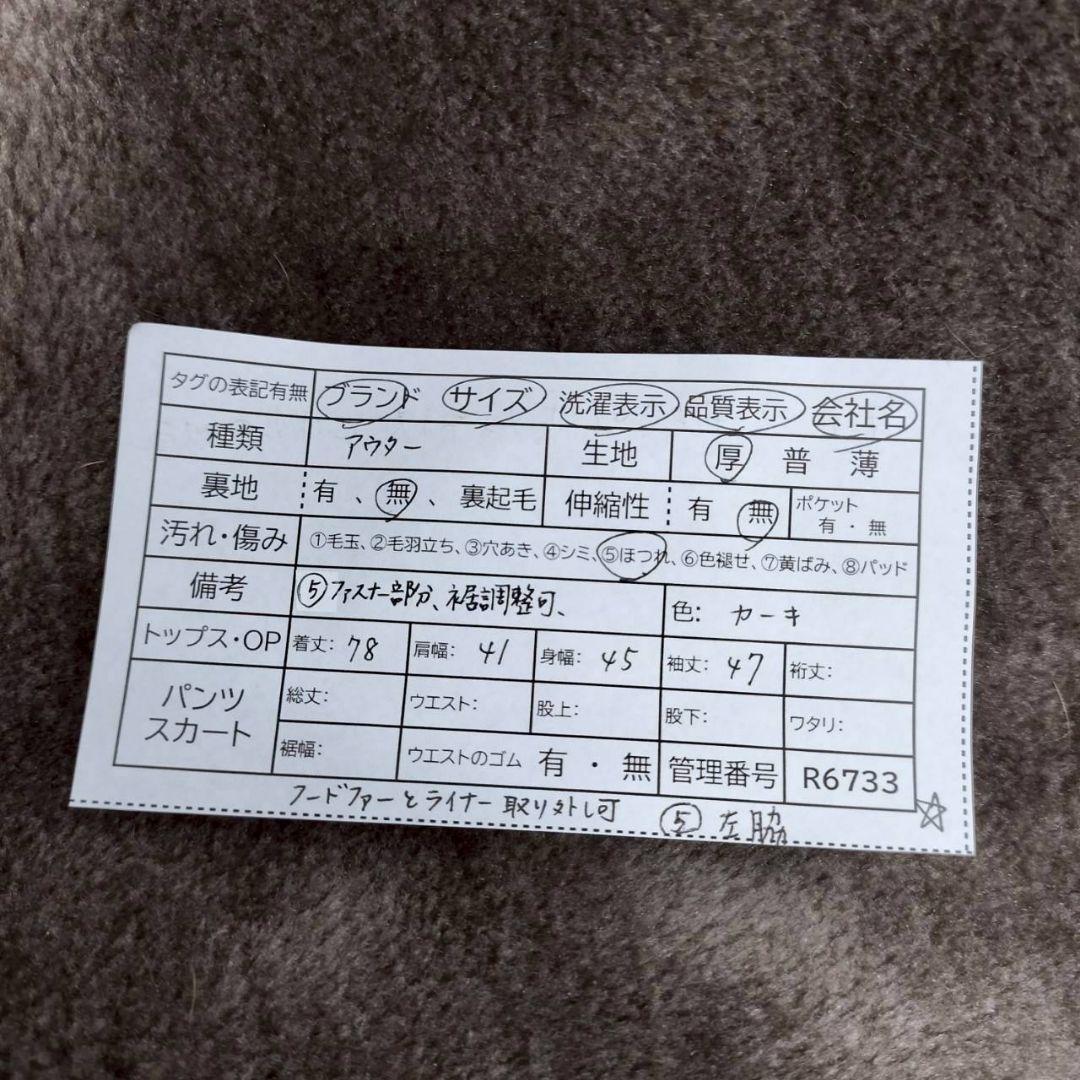 タグの表記有無 ブランド サイズ 洗濯表示 品質表示 会社名
種類 アウター 生地 厚 普 薄
裏地 有、無、裏起毛 伸縮性 有 無 ポケット 有・無
汚れ・傷み ①毛玉、②毛羽立ち、③穴あき、④シミ、⑤ほつれ、⑥色褪せ、⑦黄ばみ、⑧パッド
備考 ⑤ファスナー部分、裾調整可、 色: カーキ
トップス・OP 着丈: 78 肩幅: 41 身幅: 45 袖丈: 47 裄丈:
パンツ スカート 総丈: ウエスト: 股上: 股下: ワタリ:
裾幅: ウエストのゴム 有・無 管理番号 R6733
フードファーとライナー取り外し可 ⑤左脇